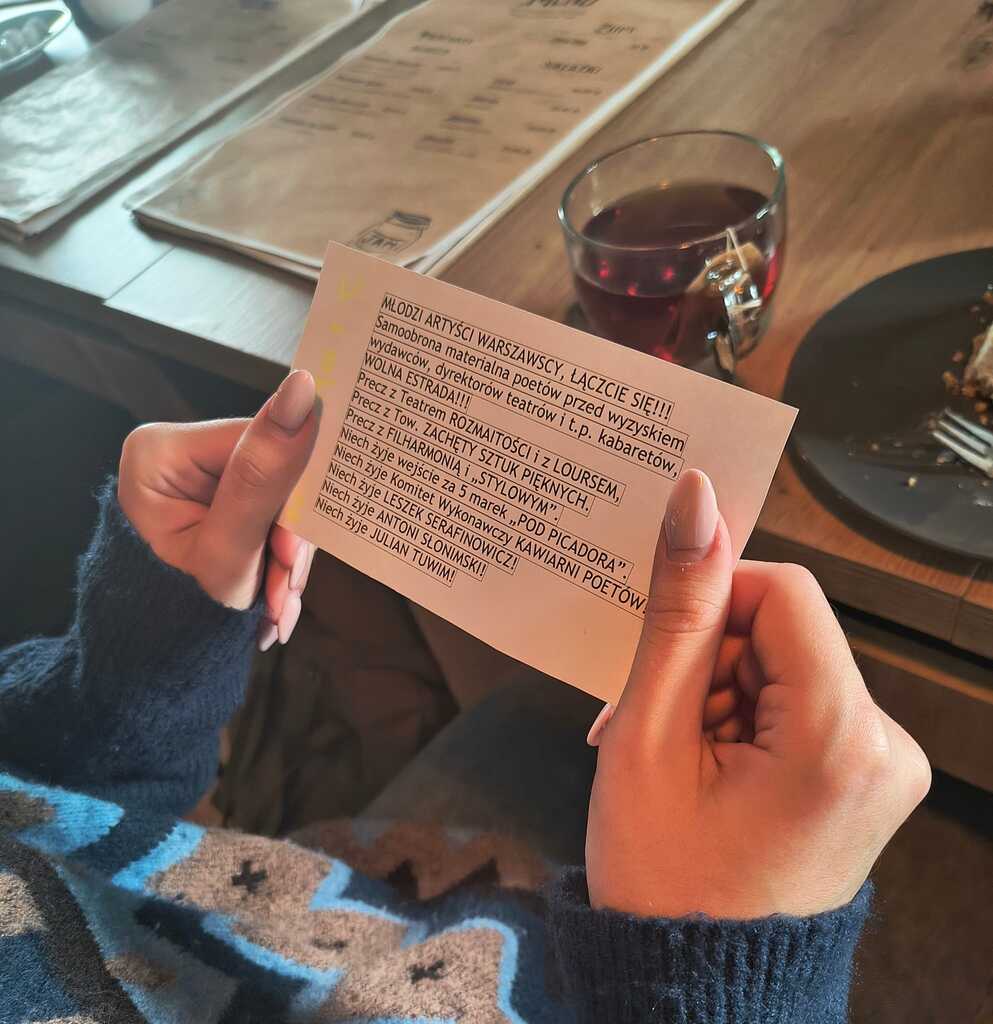 MENU
ZUPY
JAM
MŁODZI ARTYŚCI WARSZAWSCY, ŁĄCZCIE SIĘ!!!
Samoobrona materialna poetów przed wyzyskiem
wydawców, dyrektorów teatrów i t.p. kabaretów,
WOLNA ESTRADA!!!
Precz z Teatrem ROZMAITOŚCI i z LOURSEM,
Precz z Tow. ZACHĘTY SZTUK PIĘKNYCH.
Precz z FILHARMONIĄ i „STYLOWYM”.
Niech żyje wejście za 5 marek „POD PICADORA”.
Niech żyje Komitet Wykonawczy KAWIARNI POETÓW!
Niech żyje LESZEK SERAFINOWICZ!
Niech żyje ANTONI SŁONIMSKI!
Niech żyje JULIAN TUWIM!